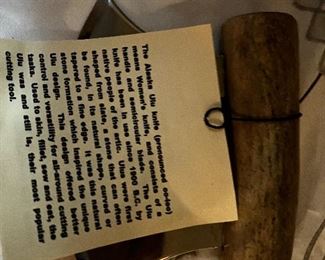 The Alaska Ulu knife (pronounced oo-loo)
means Women's knife, and consists of a
handle and semicircular blade. The Ulu
knife has been in use since 1900 B.C. by
native people of the arctic. Ulus were first
shaped from slate, a stone that can often
be found, in its natural shape, curved or
tapered to a fine edge. It was this natural
stone formation which inspired the unique
Ulu design. This design offered better
control and versatility for all around cutting
tasks. Used to skin, fillet, sew and eat, the
Ulu was and still is, their most popular
cutting tool.